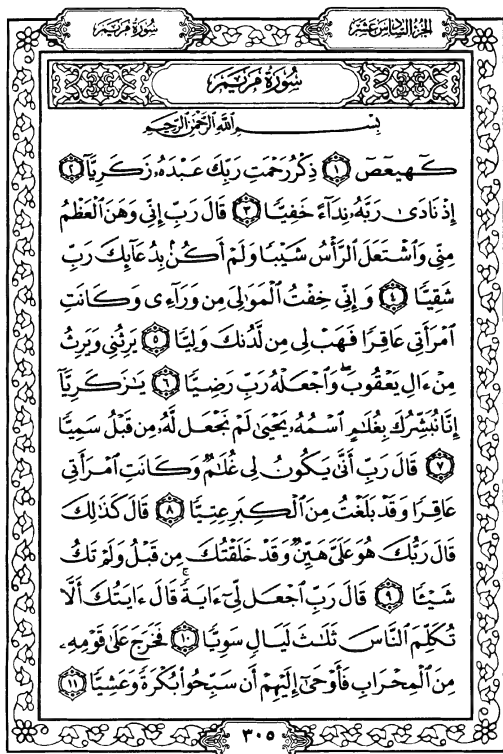 الجزء السادس عشر
سورة مريم
سورة مريم
بِسْمِ اللَّهِ الرَّحْمَٰنِ الرَّحِيمِ
كٓهيعٓصٓ ١ ذِكْرُ رَحْمَتِ رَبِّكَ عَبْدَهُۥ زَكَرِيَّآ ٢
إِذْ نَادَىٰ رَبَّهُۥ نِدَآءً خَفِيًّا ٣ قَالَ رَبِّ إِنِّى وَهَنَ ٱلْعَظْمُ
مِنِّى وَٱشْتَعَلَ ٱلرَّأْسُ شَيْبًا وَلَمْ أَكُنۢ بِدُعَآئِكَ رَبِّ
شَقِيًّا ٤ وَإِنِّى خِفْتُ ٱلْمَوَٰلِىَ مِن وَرَآءِى وَكَانَتِ
ٱمْرَأَتِى عَاقِرًا فَهَبْ لِى مِن لَّدُنكَ وَلِيًّا ٥ يَرِثُنِى وَيَرِثُ
مِنْ ءَالِ يَعْقُوبَ ۖ وَٱجْعَلْهُ رَبِّ رَضِيًّا ٦ يَٰزَكَرِيَّآ
إِنَّا نُبَشِّرُكَ بِغُلَٰمٍ ٱسْمُهُۥ يَحْيَىٰ لَمْ نَجْعَل لَّهُۥ مِن قَبْلُ سَمِيًّا
٧ قَالَ رَبِّ أَنَّىٰ يَكُونُ لِى غُلَٰمٌ وَكَانَتِ ٱمْرَأَتِى
عَاقِرًا وَقَدْ بَلَغْتُ مِنَ ٱلْكِبَرِ عِتِيًّا ٨ قَالَ كَذَٰلِكَ
قَالَ رَبُّكَ هُوَ عَلَىَّ هَيِّنٌ وَقَدْ خَلَقْتُكَ مِن قَبْلُ وَلَمْ تَكُ
شَيْـًٔا ٩ قَالَ رَبِّ ٱجْعَل لِّىٓ ءَايَةً ۚ قَالَ ءَايَتُكَ أَلَّا
تُكَلِّمَ ٱلنَّاسَ ثَلَٰثَ لَيَالٍ سَوِيًّا ١٠ فَخَرَجَ عَلَىٰ قَوْمِهِۦ
مِنَ ٱلْمِحْرَابِ فَأَوْحَىٰٓ إِلَيْهِمْ أَن سَبِّحُوا۟ بُكْرَةً وَعَشِيًّا ١١
٣٠٥